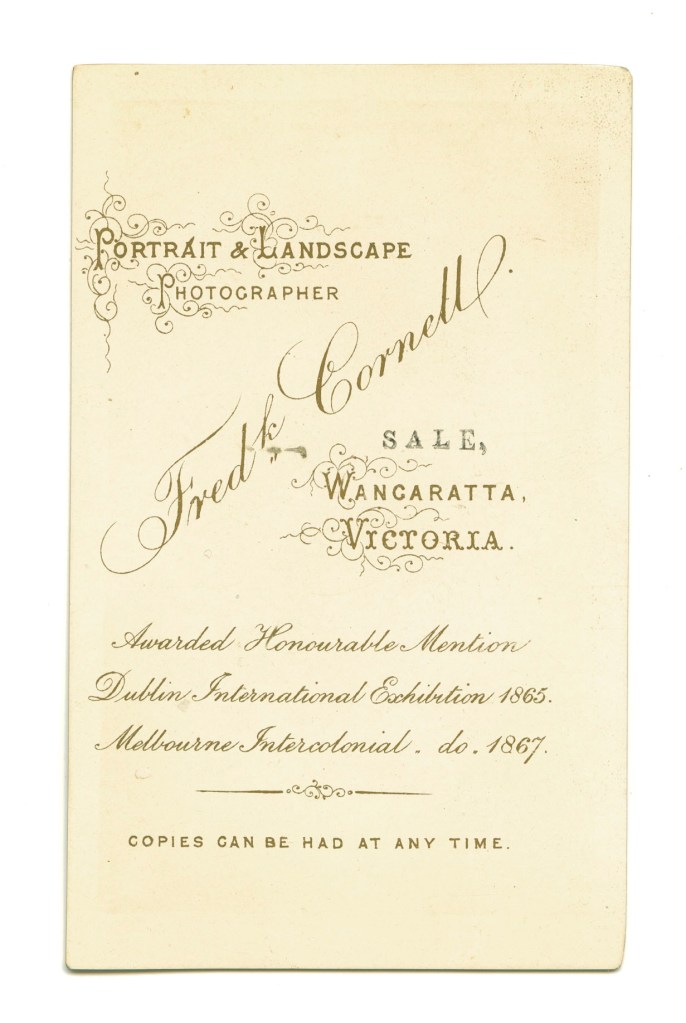 PORTRAIT & LANDSCAPE
PHOTOGRAPHER
Fredk Cornell.
SALE,
WANGARATTA,
VICTORIA.
Awarded Honourable Mention
Dublin International Exhibition 1865.
Melbourne Intercolonial . do . 1867.
COPIES CAN BE HAD AT ANY TIME.